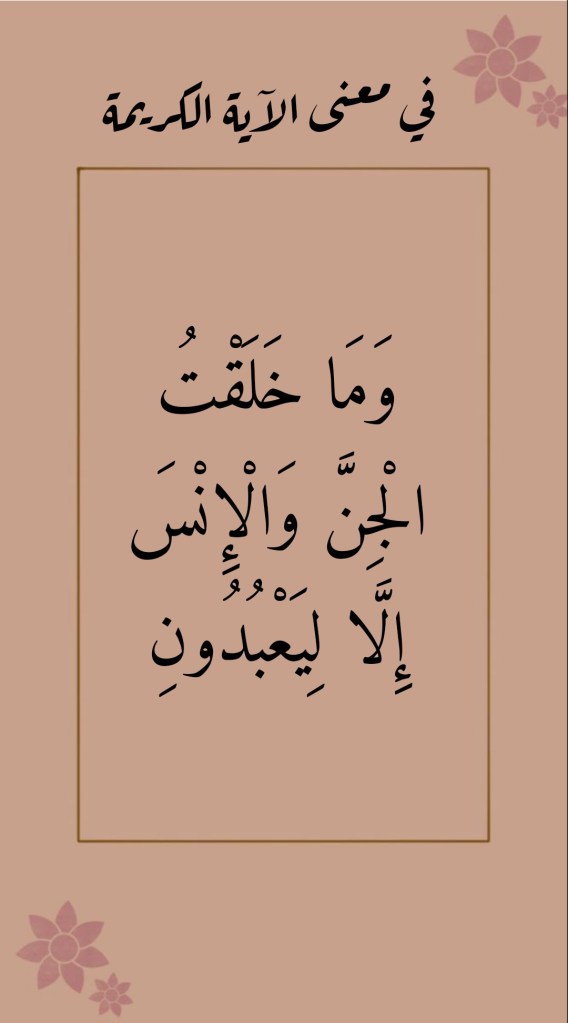 في معنى الآية الكريمة
وَمَا خَلَقْتُ
الْجِنَّ وَالْإِنْسَ
إِلَّا لِيَعْبُدُونِ